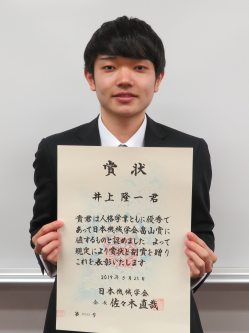 賞状
井上隆一君
貴君は人格学業ともに優秀で
あって日本機械学会畠山賞に
値するものと認めました よって
規定により賞状と副賞を贈り
これを表彰いたします
2019年3月25日
日本機械学会
会長 佐々木直哉